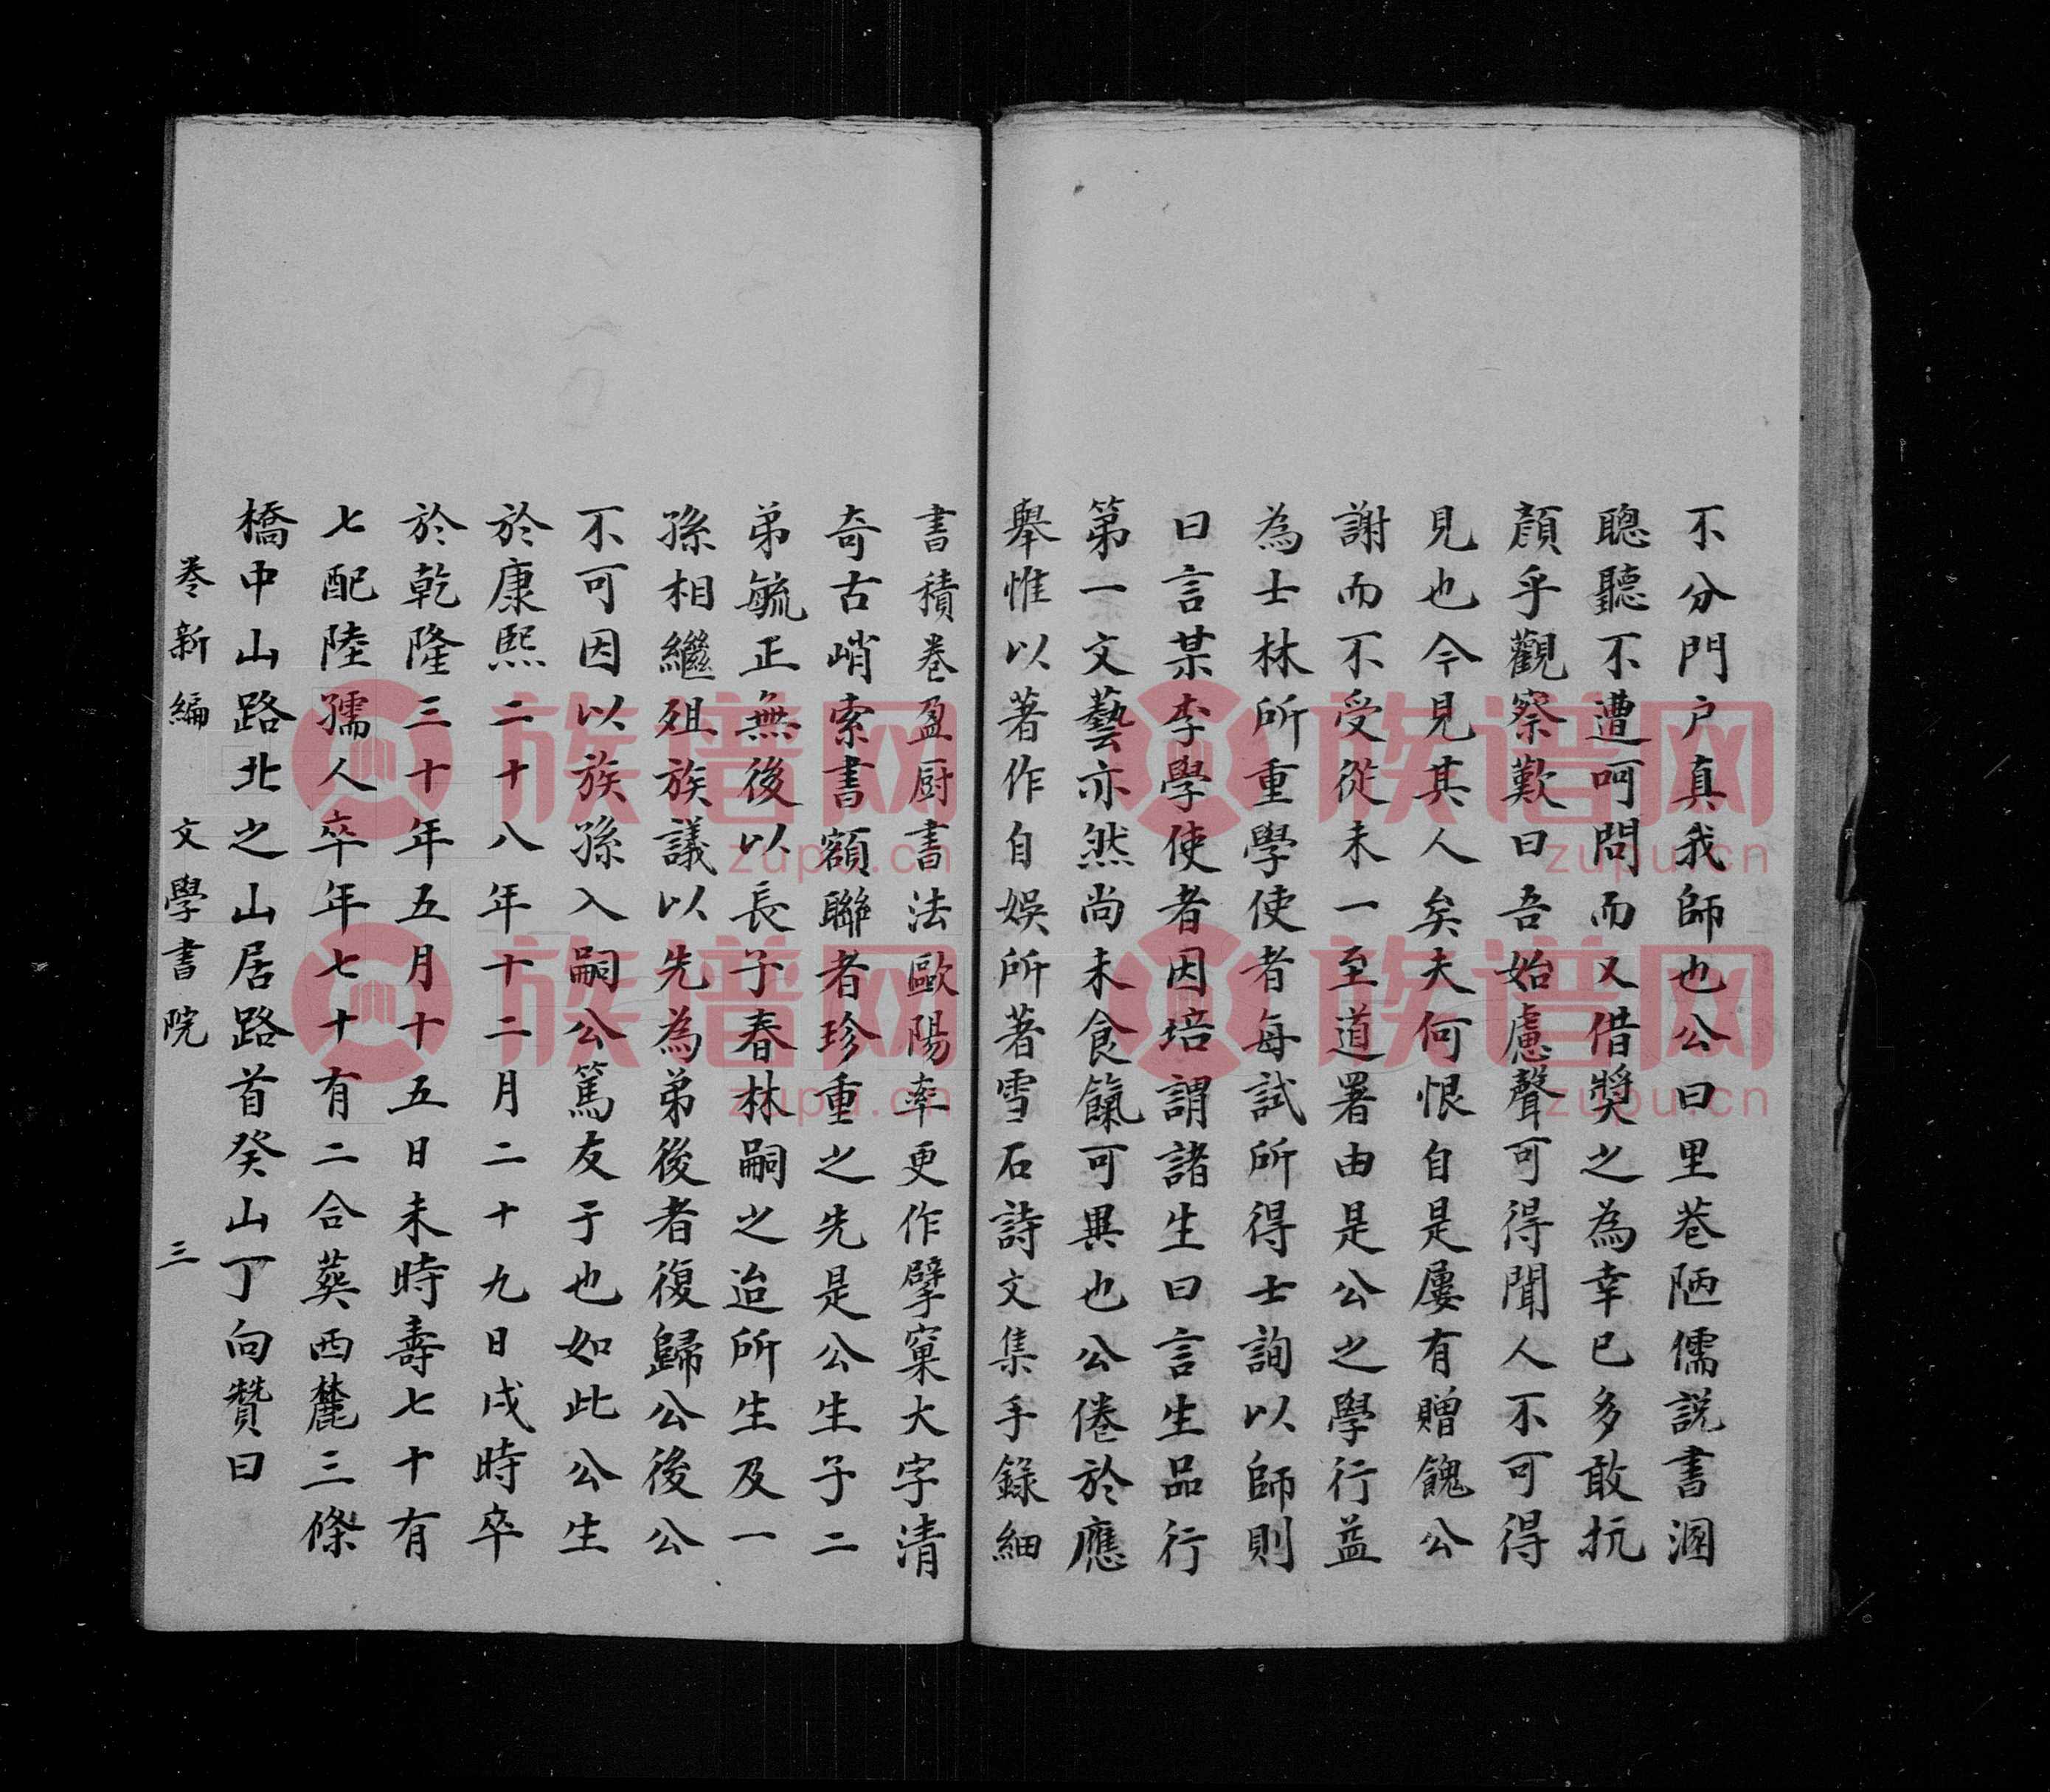 不分門户真我師也公曰里巷陋儒説書溷
聰聽不遭呵問而又借奬之為幸已多敢抗
顔乎觀察歎曰吾始慮聲可得聞人不可得
見也今見其人矣夫何恨自是屢有贈餽公
謝而不受從未一至道署由是公之學行益
為士林所重學使者每試所得士詢以師則
曰言某李學使者因培謂諸生曰言生品行
第一文藝亦然尚未食餼可異也公倦於應
舉惟以著作自娛所著雪石詩文集手錄細
書積卷盈厨書法歐陽率更作擘窠大字清
奇古峭索書額聯者珍重之先是公生子二
弟毓正無後以長子春林嗣之迨所生及一
孫相繼殂族議以先為弟後者復歸公後公
不可因以族孫入嗣公篤友于也如此公生
於康熙二十八年十二月二十九日戌時卒
於乾隆三十年五月十五日未時壽七十有
七配陸孺人卒年七十有二合葬西麓三條
橋中山路北之山居路首癸山丁向贊曰
巻新編 文學書院 三
族谱网
zupu.cn
族谱网
zupu.cn
族谱网
zupu.cn
族谱网
zupu.cn